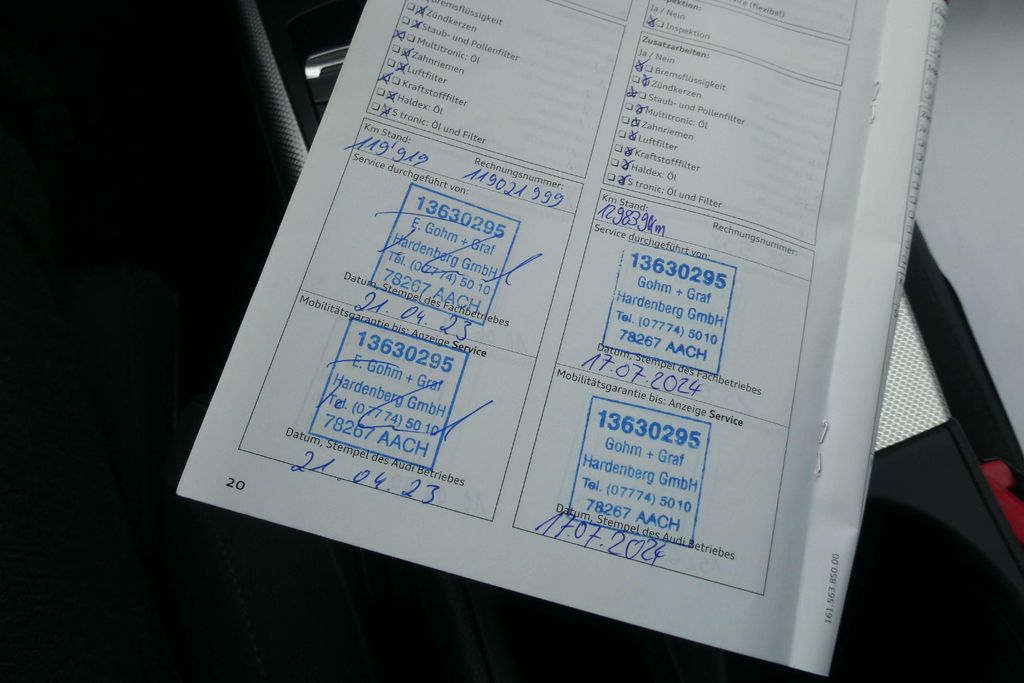 Bremsflüssigkeit
Zündkerzen
Staub- und Pollenfilter
Multitronic: Öl
Zahnriemen
Luftfilter
Kraftstofffilter
Haldex: Öl
S tronic: Öl und Filter
Km Stand: Rechnungsnummer:
119'919 119021999
Service durchgeführt von:
13630295
E. Gohm + Graf
Hardenberg GmbH
Tel. (07774) 50 10
78267 AACH
Datum, Stempel des Fachbetriebes
21. 04. 23
Mobilitätsgarantie bis: Anzeige Service
13630295
E. Gohm + Graf
Hardenberg GmbH
Tel. (07774) 50 10
78267 AACH
Datum, Stempel des Audi Betriebes
21. 04. 23
20
Ja / Nein
Inspektion
Zusatzarbeiten:
Ja / Nein
Bremsflüssigkeit
Zündkerzen
Staub- und Pollenfilter
Multitronic: Öl
Zahnriemen
Luftfilter
Kraftstofffilter
Haldex: Öl
S tronic: Öl und Filter
Km Stand: Rechnungsnummer:
129839km
Service durchgeführt von:
13630295
Gohm + Graf
Hardenberg GmbH
Tel. (07774) 50 10
78267 AACH
Datum, Stempel des Fachbetriebes
17.07.2024
Mobilitätsgarantie bis: Anzeige Service
13630295
Gohm + Graf
Hardenberg GmbH
Tel. (07774) 50 10
78267 AACH
Datum, Stempel des Audi Betriebes
17.07.2024
161.563.850.00